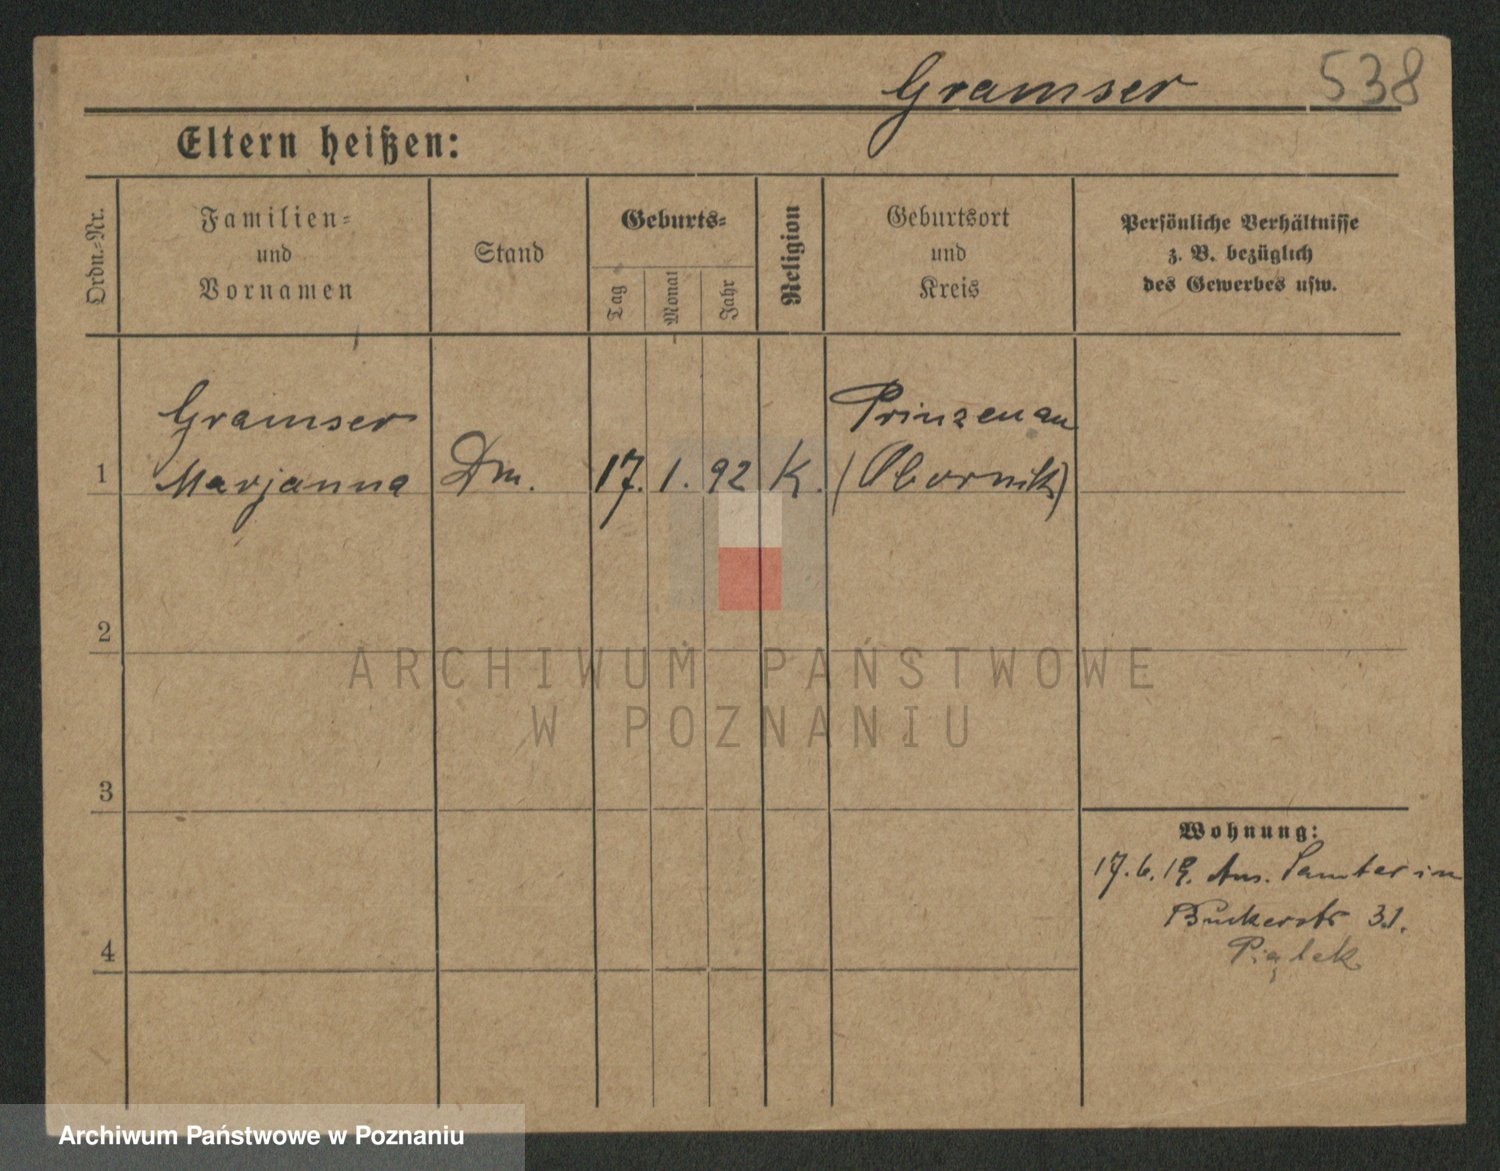 Gramser 538
Eltern heißen:
Ordn.-Nr.
Familien-
und
Vornamen
Stand
Geburts-
Tag
Monat
Jahr
Religion
Geburtsort
und
Kreis
Persönliche Verhältnisse
z. B. bezüglich
des Gewerbes usw.
Gramser
Prinzenau
1 Marjanna Dm. 17. 1. 92 K. (Obornik)
2
ARCHIWUM PAŃSTWOWE
W POZNANIU
3
Wohnung:
17.6.19. Aus. Samter in
Buckerstr 31.
Piątek
4
Archiwum Państwowe w Poznaniu